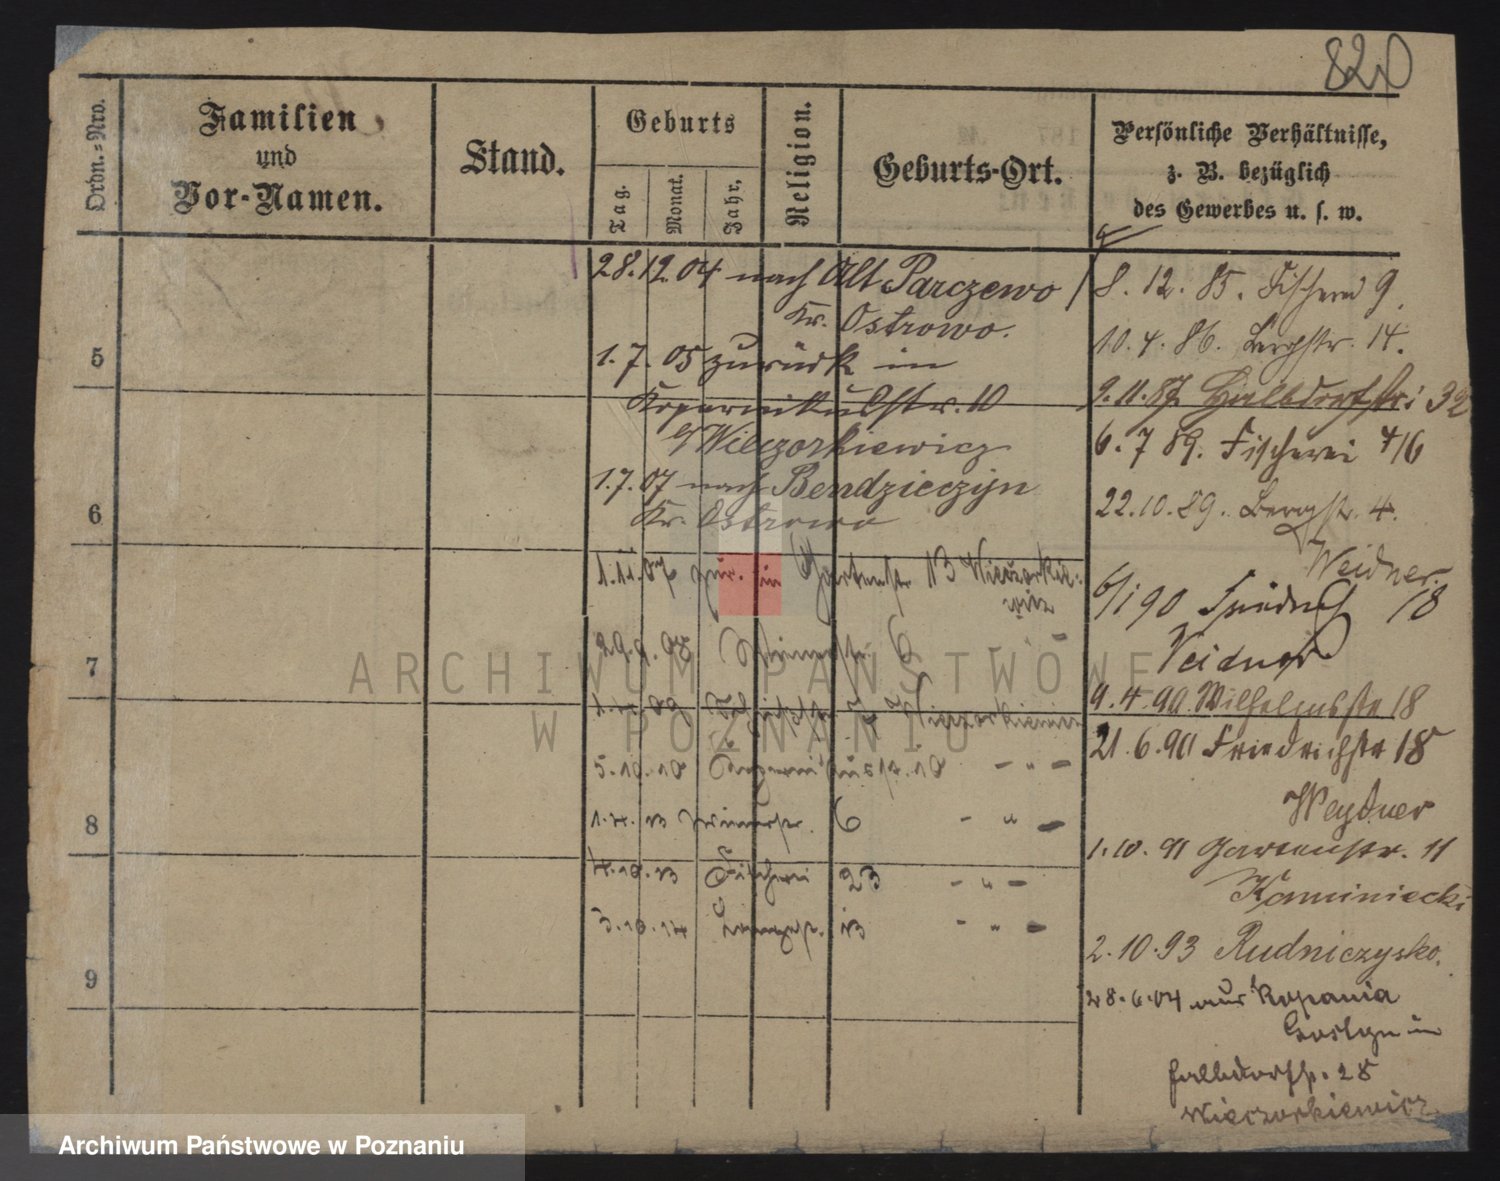 820
Ordn.=Nro.
Familien
und
Vor-Namen.
Stand.
Geburts
Tag.
Monat.
Jahr,
Religion.
Geburts-Ort.
Persönliche Verhältnisse,
z. B. bezüglich
des Gewerbes u. s. w.
5
6
7
8
9
28.12.04 nach Alt Parczewo
Kr. Ostrowo.
1.7.05 zurück in
Kopernikusstr. 10
Wieczorkiewicz
1.7.07 nach Bendzieczyn
Kr. Ostrowo
1.11.07 zur. in Gartenstr 13 Wieczorkie-
wicz
29.9.08 6 - " -
1.4.09 Wieczorkiewicz
5.10.10 - " -
1.4.13 6 - " -
4.10.13 Fischerei 23 - " -
3.10.14 13 - " -
8. 12. 85. Fischerei 9.
10. 4. 86. Bergstr. 14.
9. 11. 87. Halbdorfstr 32
6. 7 89. Fischerei 4/6
22. 10. 89. Bergstr. 4.
Weidner.
6/1 90 Friedrich 18
Weidner
9. 4. 90 Wilhelmstr 18
21. 6. 90 Friedrichstr 18
Weydner
1. 10. 91 Gartenstr. 11
Kaminiecki
2. 10. 93 Rudniczysko.
28. 6. 04 aus Kopania
Gostyn in
Halbdorfstr. 28
Wieczorkiewicz.
ARCHIWUM PAŃSTWOWE
W POZNANIU
Archiwum Państwowe w Poznaniu